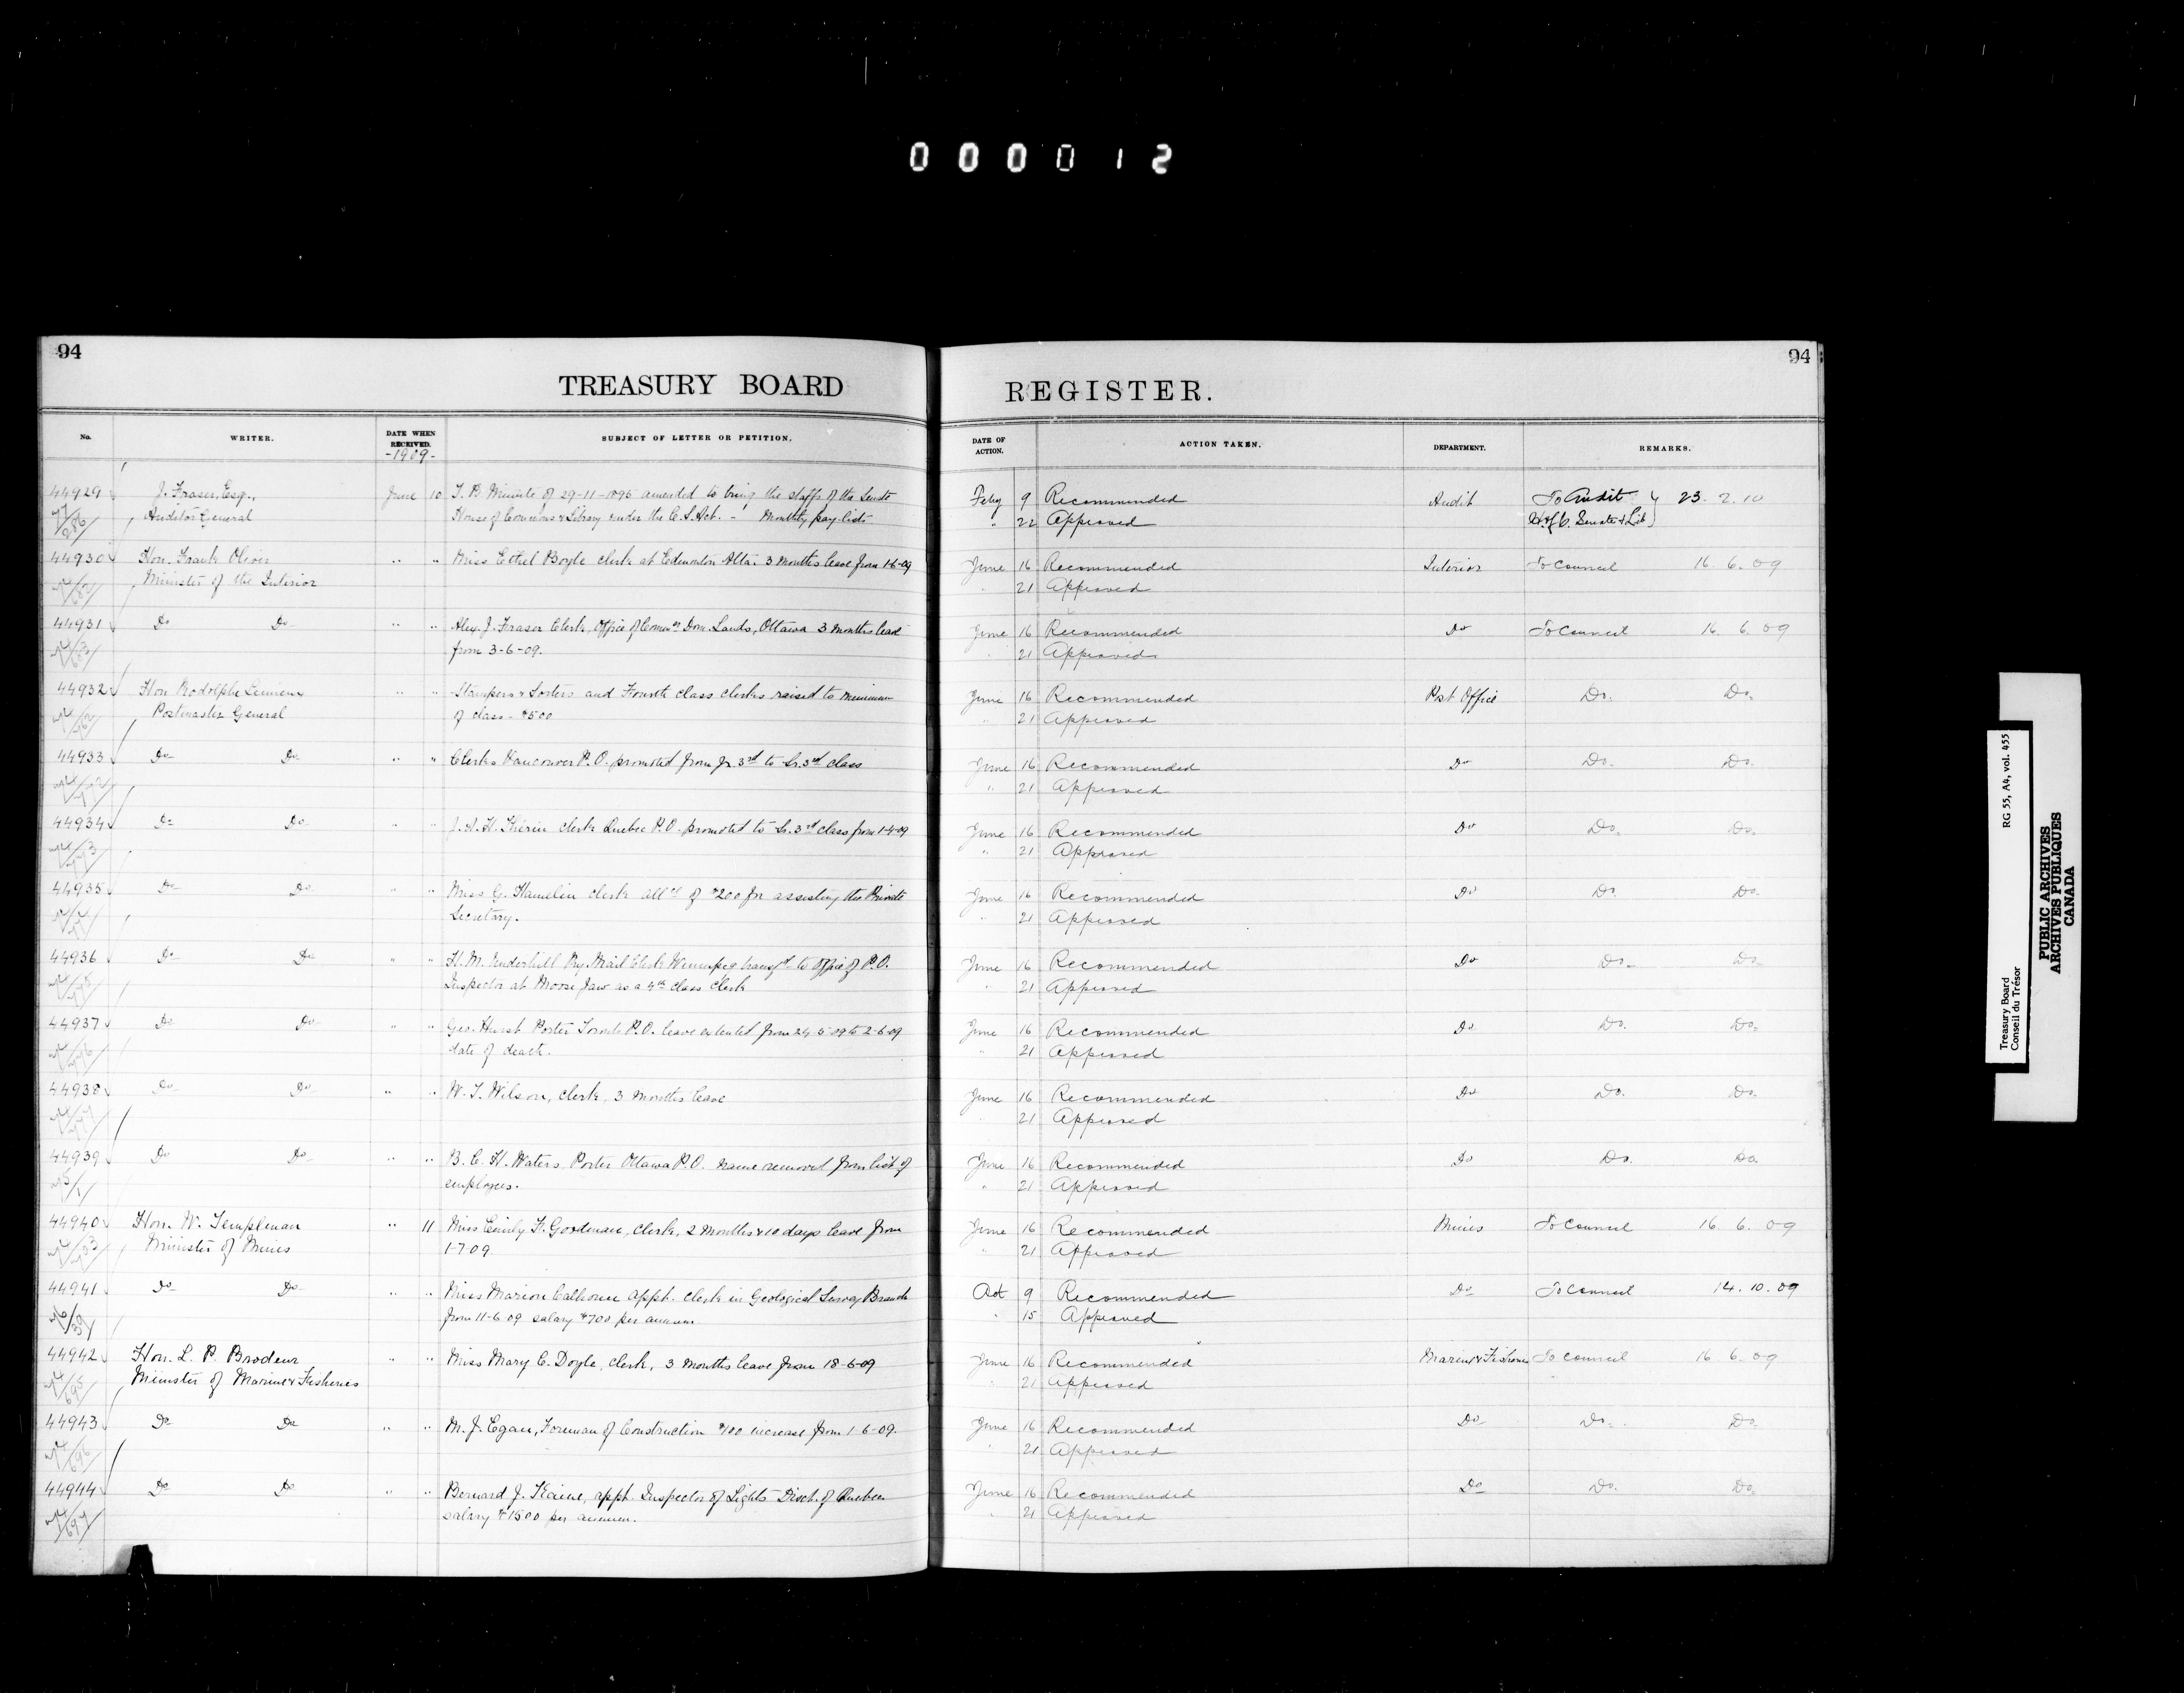 000012
94
94
TREASURY BOARD
REGISTER.
No.
WRITER.
DATE WHEN RECEIVED.
-1909-
SUBJECT OF LETTER OR PETITION.
DATE OF ACTION.
ACTION TAKEN.
DEPARTMENT.
REMARKS.
44929 J. Fraser, Esq., June 10 T. B. Minute of 29-11-1895 amended to bring the staffs of the Senate Feby 9 Recommended Audit To Audit } 23. 2. 10
Auditor General House of Commons & Library under the C. S. Act. - Monthly pay lists " 22 Approved H. of C. Senate & Lib
44930 Hon. Frank Oliver " " Miss Ethel Boyle clerk at Edmonton Alta. 3 months leave from 1-6-09 June 16 Recommended Interior To Council 16. 6. 09
Minister of the Interior " 21 Approved
44931 Do Do " " Alex. J. Fraser Clerk, Office of Commr Dom. Lands, Ottawa 3 months leave June 16 Recommended Do To Council 16. 6. 09
from 3-6-09. " 21 Approved
44932 Hon Rodolphe Lemieux " " Stampers & Sorters and Fourth class clerks raised to minimum June 16 Recommended Post Office Do. Do.
Postmaster General of class - $500 " 21 Approved
44933 Do Do " " Clerks Vancouver P.O. promoted from Jr. 3rd to Sr. 3rd class June 16 Recommended Do Do. Do.
" 21 Approved
44934 Do Do " " J. A. H. clerk Quebec P.O. promoted to Sr. 3rd class from 1-4-09 June 16 Recommended Do Do. Do.
" 21 Approved
44935 Do Do " " Miss G. Hamelin clerk allce of $200 for assisting the Private June 16 Recommended Do Do. Do.
Secretary. " 21 Approved
44936 Do Do " " H. M. Underhill Ry. Mail Clerk Winnipeg transfd to office of P.O. June 16 Recommended Do Do. Do.
Inspector at Moose Jaw as a 4th class Clerk " 21 Approved
44937 Do Do " " Geo. Hurst Porter Toronto P.O. leave extended from 24-5-09 to 2-6-09 June 16 Recommended Do Do. Do.
date of death. " 21 Approved
44938 Do Do " " W. T. Wilson, clerk, 3 months leave June 16 Recommended Do Do. Do.
" 21 Approved
44939 Do Do " " B. C. H. Waters Porter Ottawa P.O. name removed from list of June 16 Recommended Do Do. Do.
employees. " 21 Approved
44940 Hon. W. Templeman " 11 Miss Emily F. Goodman, clerk, 2 months & 10 days leave from June 16 Recommended Mines To Council 16. 6. 09
Minister of Mines 1-7-09. " 21 Approved
44941 Do Do " " Miss Marion Calhoun appt. clerk in Geological Survey Branch Oct 9 Recommended Do To Council 14. 10. 09
from 11-6-09 salary $700 per annum " 15 Approved
44942 Hon. L. P. Brodeur " " Miss Mary C. Doyle, clerk, 3 months leave from 18-6-09 June 16 Recommended Marine & Fisheries To Council 16 6. 09
Minister of Marine & Fisheries " 21 Approved
44943 Do Do " " M. J. Egan, Foreman of Construction $100 increase from 1-6-09. June 16 Recommended Do Do. Do.
" 21 Approved
44944 Do Do " " Bernard J. appt. Inspector of Lights Dist. of Quebec June 16 Recommended Do Do. Do.
salary $1500 per annum. " 21 Approved
Treasury Board
Conseil du Trésor
RG 55, A4, vol. 455
PUBLIC ARCHIVES
ARCHIVES PUBLIQUES
CANADA